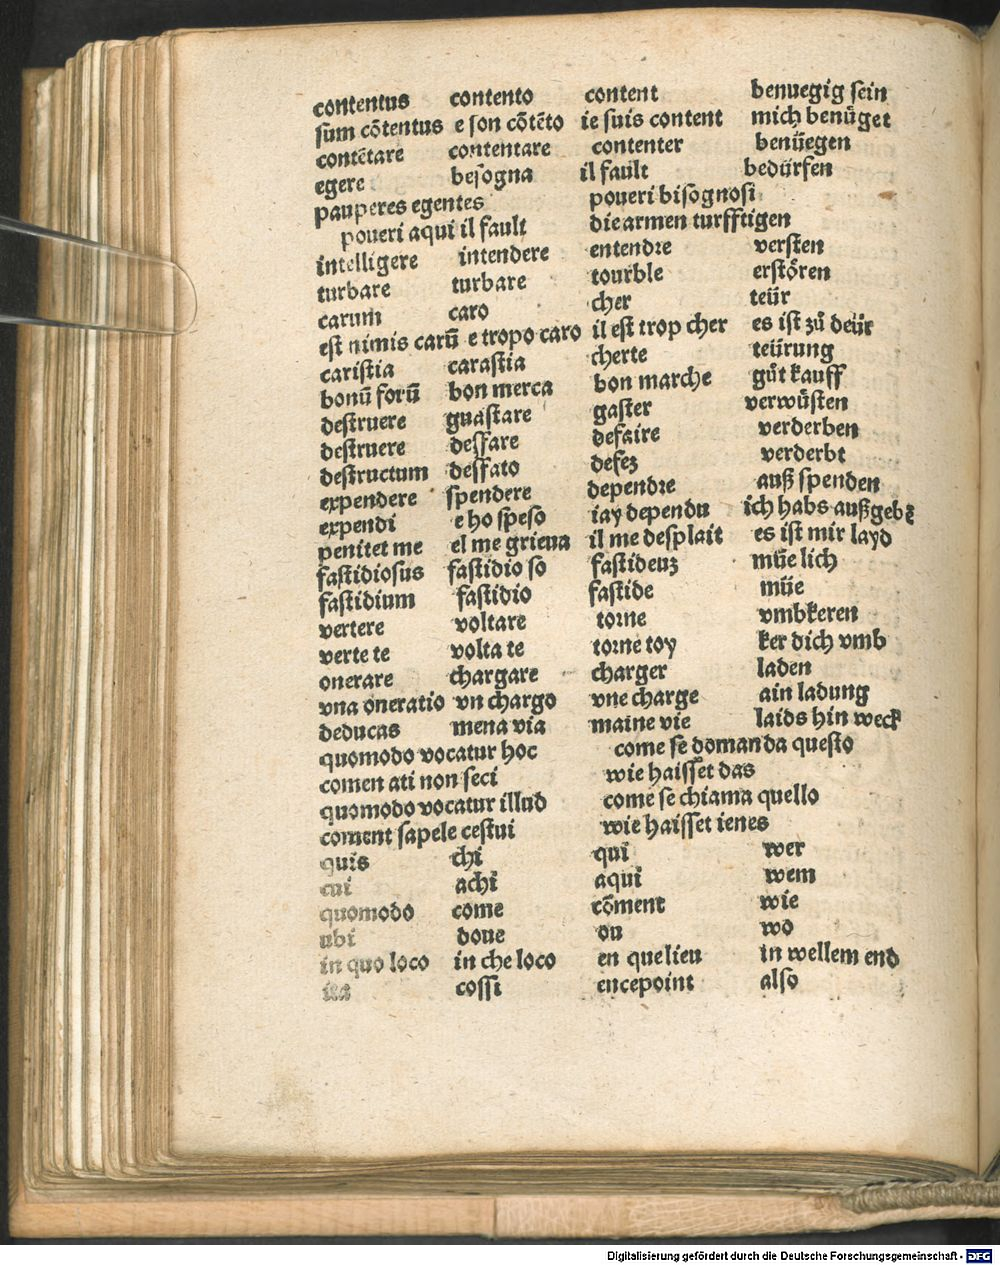 contentus contento content benuegig sein
sum cõtentus e son cõtẽto ie suis content mich benüget
contẽtare contentare contenter benüegen
egere besogna il fault bedürfen
pauperes egentes poueri bisognosi
poueri aqui il fault die armen turfftigen
intelligere intendere entendre versten
turbare turbare tourble erstören
carum caro cher teür
est nimis carũ e tropo caro il est trop cher es ist zů deür
caristia carastia cherte teürung
bonũ forũ bon merca bon marche gůt kauff
destruere guastare gaster verwůsten
destruere desfare defaire verderben
destructum desfato defez verderbt
expendere spendere dependre auß spenden
expendi e ho speso iay dependu ich habs außgebẽ
penitet me el me grieua il me desplait es ist mir layd
fastidiosus fastidio so fastideuz müe lich
fastidium fastidio fastide müe
vertere voltare torne vmbkeren
verte te volta te torne toy ker dich vmb
onerare chargare charger laden
vna oneratio vn chargo vne charge ain ladung
deducas mena via maine vie laids hin weck
quomodo vocatur hoc come se domanda questo
comen ati non seci wie haisset das
quomodo vocatur illud come se chiama quello
coment sapele cestui wie haisset ienes
quis chi qui wer
cui achi aqui wem
quomodo come cõment wie
ubi doue ou wo
in quo loco in che loco en quelieu in wellem end
ita cossi encepoint also
Digitalisierung gefördert durch die Deutsche Forschungsgemeinschaft - DFG